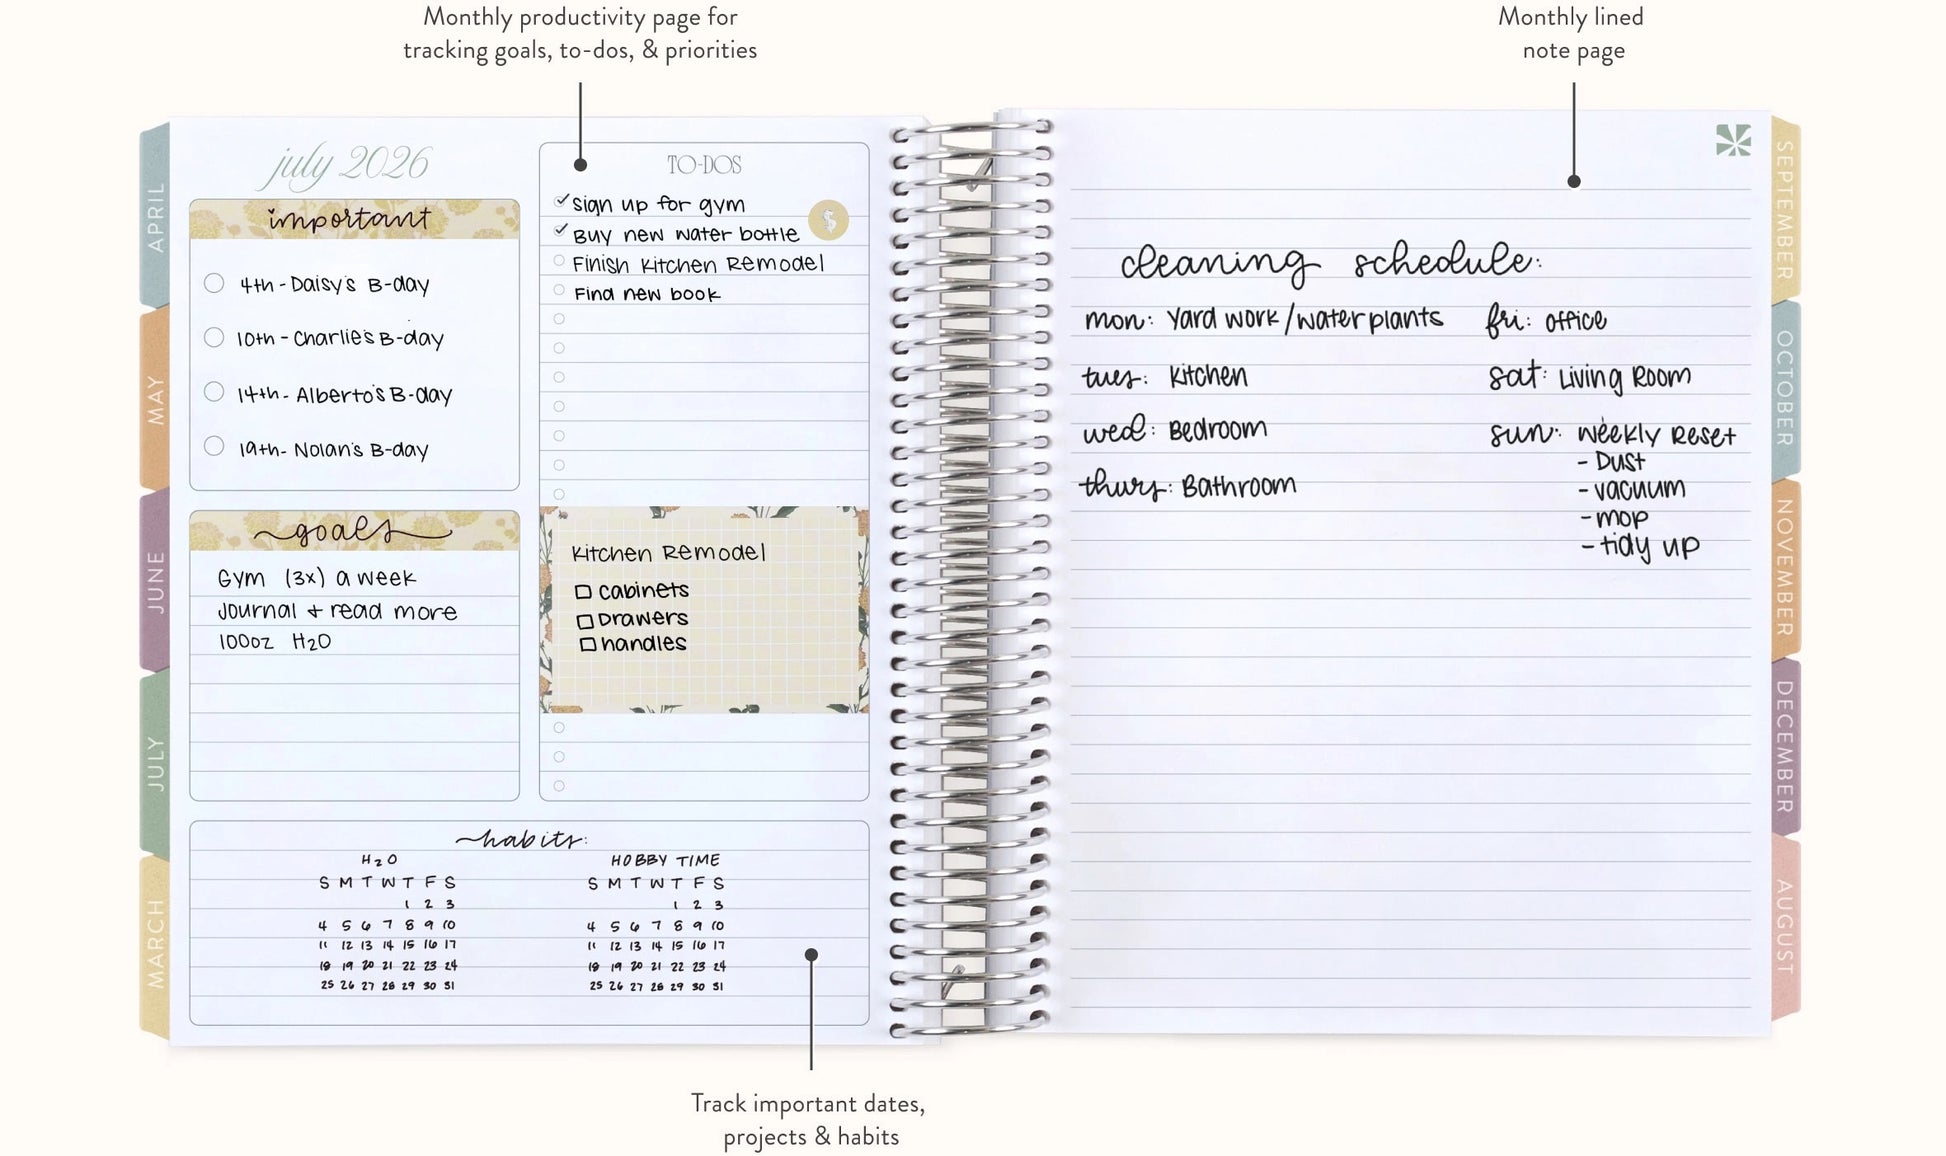 Monthly productivity page for
tracking goals, to-dos, & priorities
Monthly lined
note page
APRIL
MAY
JUNE
JULY
MARCH
july 2026
important
4th - Daisy's B-day
10th - Charlie's B-day
14th - Alberto's B-day
19th - Nolan's B-day
goals
Gym (3x) a week
Journal + read more
100oz H2O
TO-DOS
Sign up for gym
Buy new water bottle
Finish Kitchen Remodel
Find new book
$
Kitchen Remodel
cabinets
Drawers
handles
habits:
H2O
S M T W T F S
1 2 3
4 5 6 7 8 9 10
11 12 13 14 15 16 17
18 19 20 21 22 23 24
25 26 27 28 29 30 31
HOBBY TIME
S M T W T F S
1 2 3
4 5 6 7 8 9 10
11 12 13 14 15 16 17
18 19 20 21 22 23 24
25 26 27 28 29 30 31
cleaning schedule:
mon: Yard work/water plants
tues: Kitchen
wed: Bedroom
thurs: Bathroom
fri: office
sat: Living Room
sun: Weekly Reset
- Dust
- vacuum
- mop
- tidy up
SEPTEMBER
OCTOBER
NOVEMBER
DECEMBER
AUGUST
Track important dates,
projects & habits